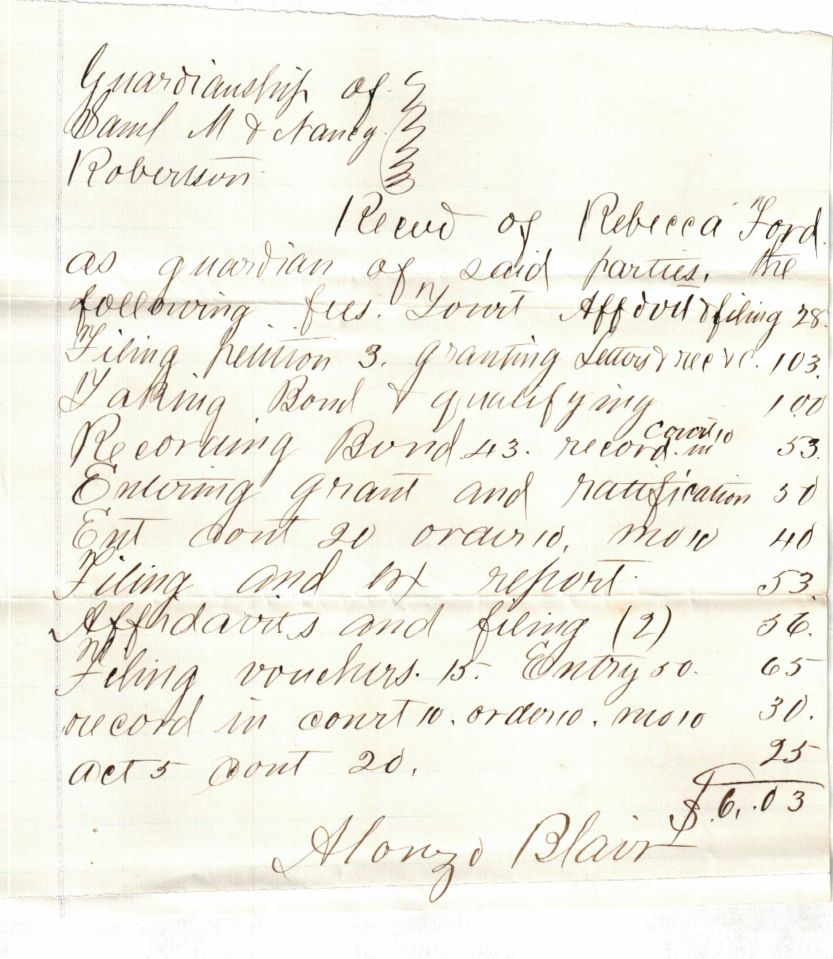 Guardianship of
Saml M & Nancy
Robertson
Recvd of Rebecca Ford
as guardian of said parties, the
following fees. Court Affdvit & filing 28
Filing petition 3. granting Letters & rec &c. 103.
Taking Bond & qualifying 100
Recording Bond 43. record in court 10 53.
Entering grant and ratification 50
Ent cont 20 order 10, mo 10 40
Filing and ex report. 53.
Affidavits and filing (2) 56.
Filing vouchers. 15. Entry 50. 65
record in court 10. order 10. mo 10 30.
act 5 cont 20. 25
$6.03
Alonzo Blair